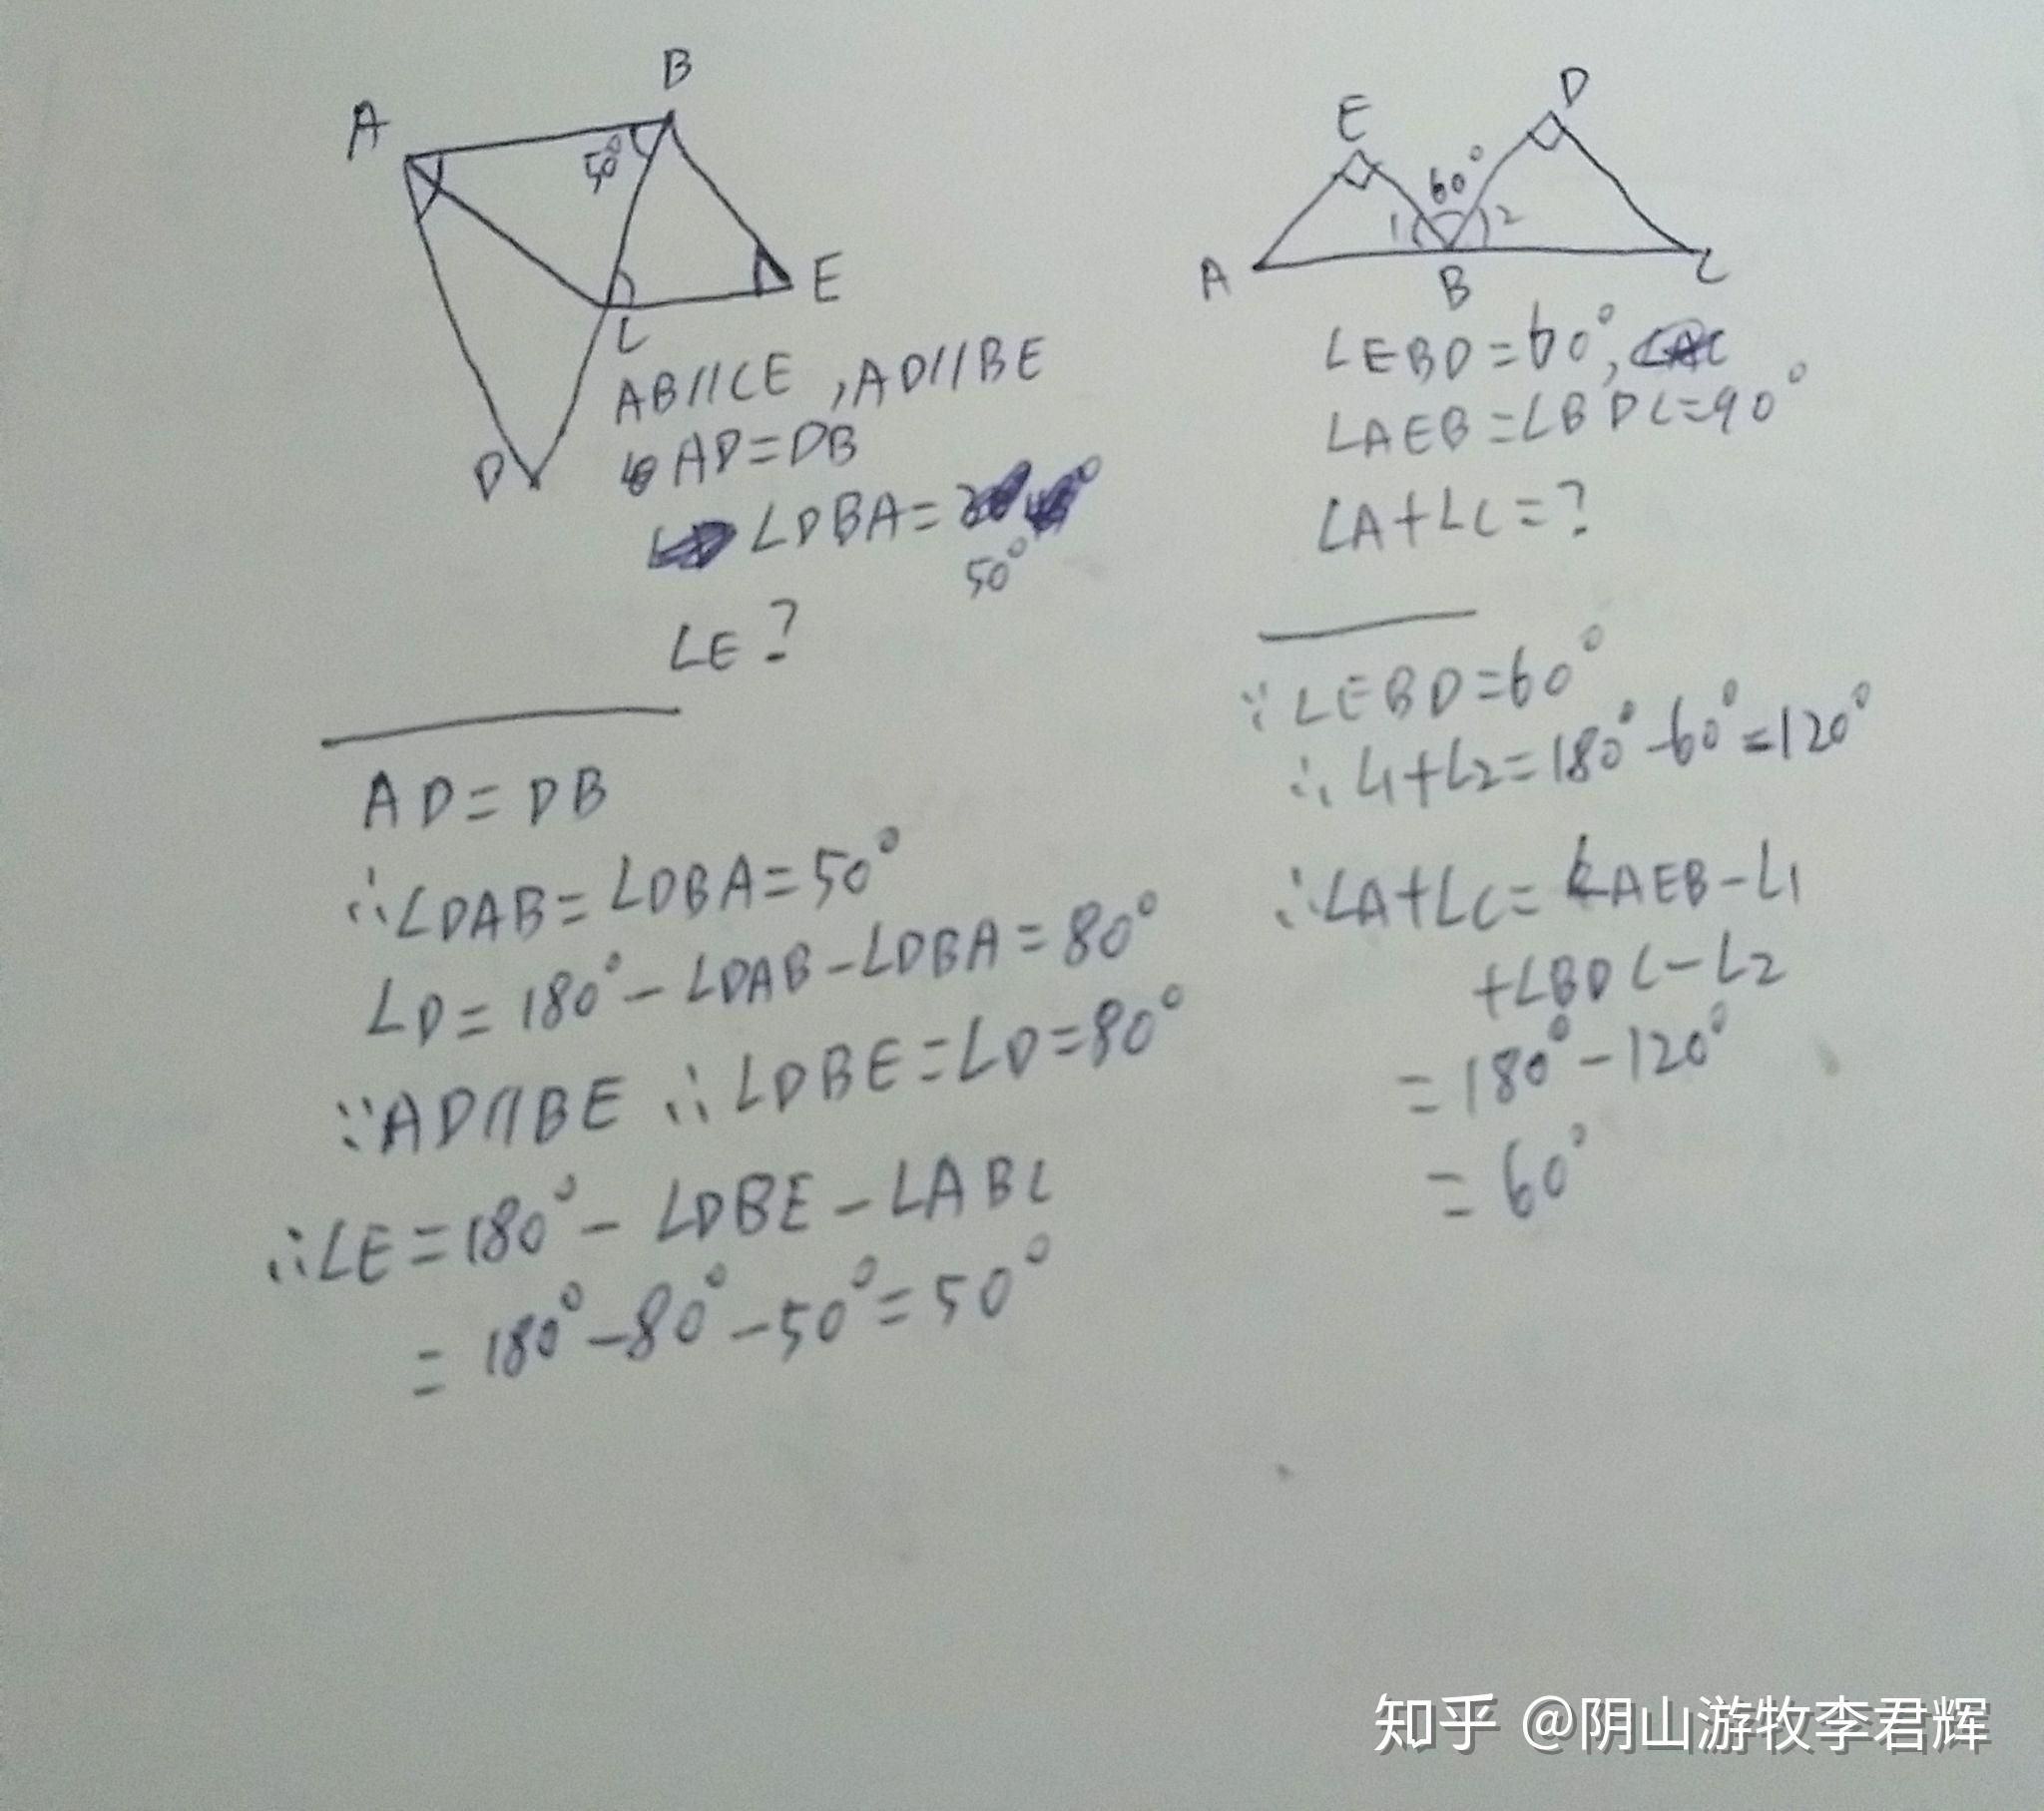 B
A
50°
E
C
D
AB//CE ,AD//BE
AD=DB
∠DBA=
50°
∠E?
AD=DB
∴∠DAB=∠DBA=50°
∠D=180°-∠DAB-∠DBA=80°
∵AD//BE ∴∠DBE=∠D=80°
∴∠E=180°-∠DBE-∠ABC
=180°-80°-50°=50°
D
E
60°
1
2
A
B
C
∠EBD=60°,
∠AEB=∠BDC=90°
∠A+∠C=?
∵∠EBD=60°
∴∠1+∠2=180°-60°=120°
∴∠A+∠C=∠AEB-∠1
+∠BDC-∠2
=180°-120°
=60°
知乎 @阴山游牧李君辉